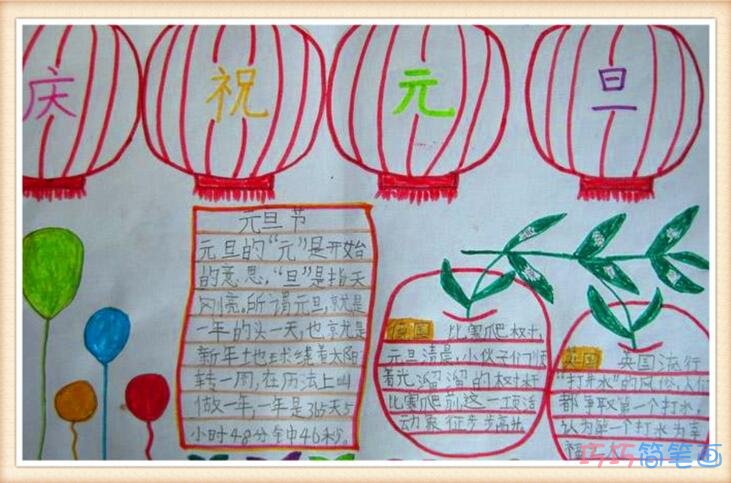 庆祝元旦
元旦节
元旦的“元”是开始
的意思，“旦”是指天
刚亮。所谓元旦，就是
一年的头一天，也就是
新年地球绕着太阳
转一周，在历法上叫
做一年，一年是365天5
小时48分钟46秒。
德国 比赛爬树
元旦清晨，小伙子们顺
着光溜溜的树杆
比赛爬，这一项活
动象征步步高
英国 英国流行
“打井水”的风俗，人们
都争取第一个打水，
认为第一个打水为幸
福
巧巧简笔画